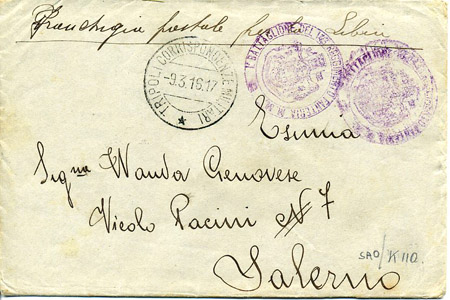 Franchigia postale Libia
TRIPOLI CORRISPONDENZE MILITARI
-9.3.16.17
Esimia
Signa Wanda Genovese
Vicolo Pacini N 7
Salerno
SAO/K110